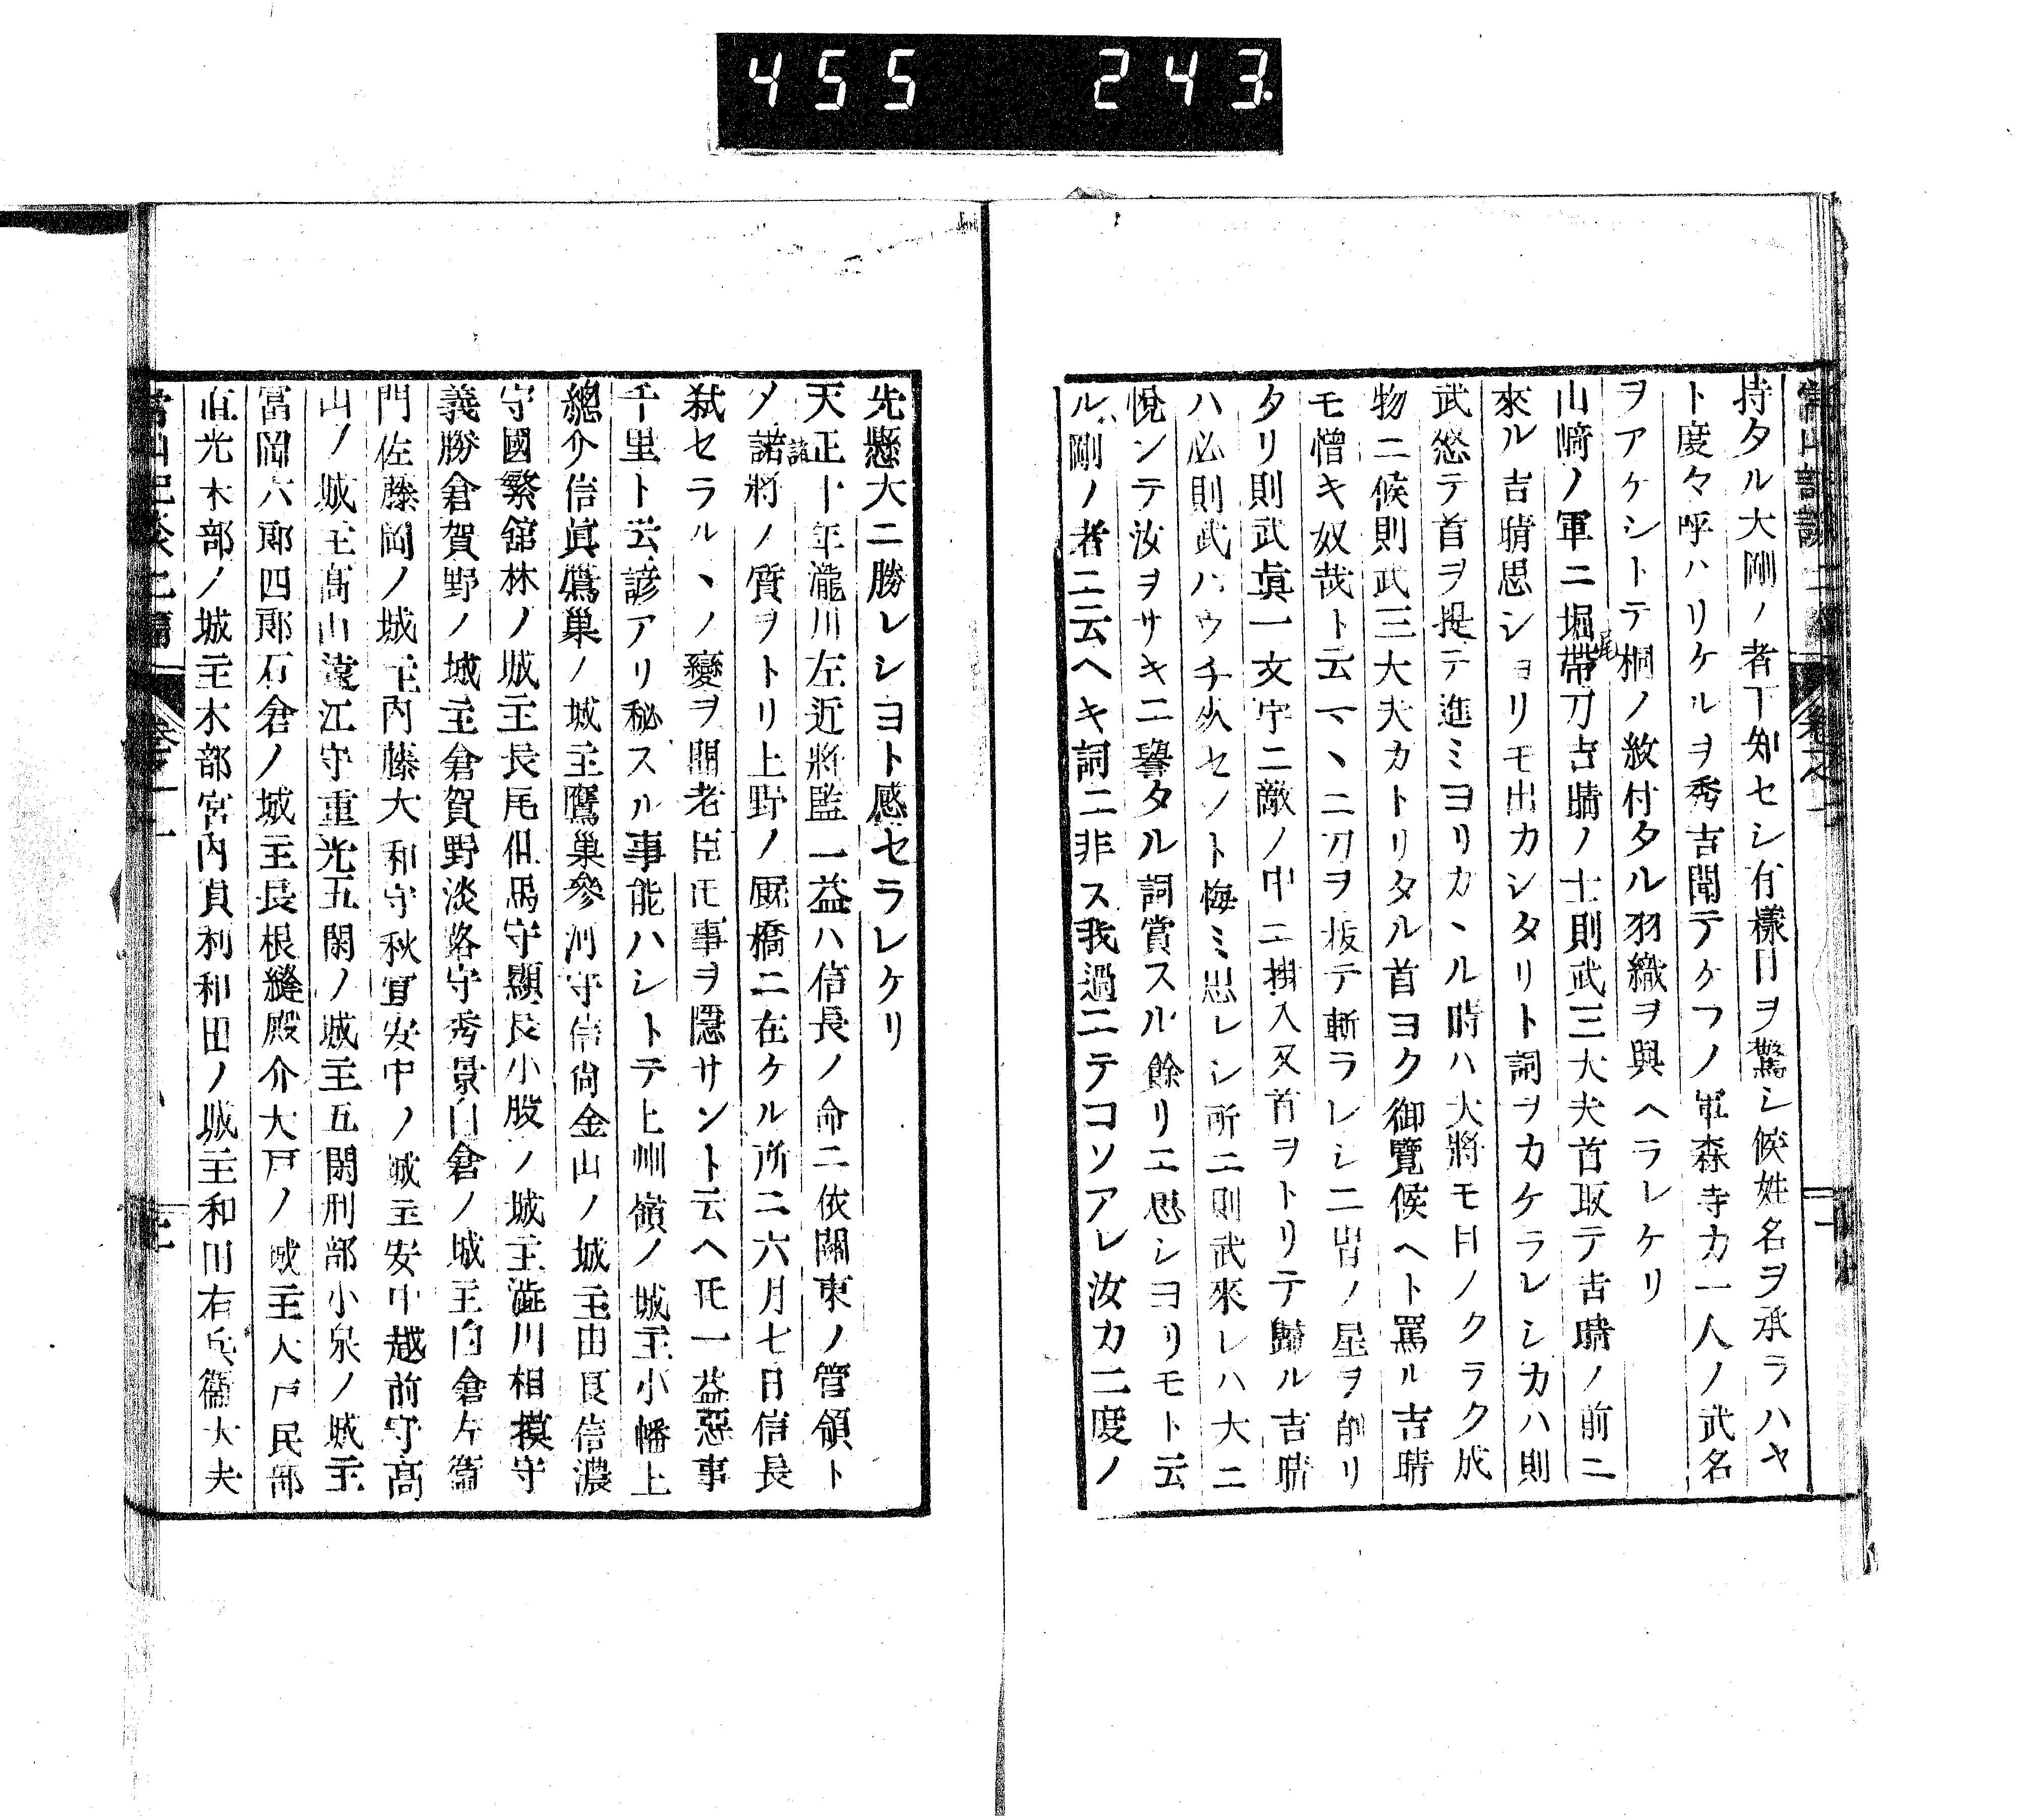 455 243.
持タル大剛ノ者下知セシ有樣目ヲ驚シ候姓名ヲ承ラハヤ
ト度々呼ハリケルヲ秀吉聞テケフノ軍森寺カ一人ノ武名
ヲアケシトテ桐ノ紋付タル羽織ヲ與ヘラレケリ
山﨑ノ軍ニ堀尾帶刀吉晴ノ士則武三大夫首取テ吉晴ノ前ニ
來ル吉晴思シヨリモ出カシタリト詞ヲカケラレシカハ則
武怒テ首ヲ提テ進ミヨリカヽル時ハ大將モ目ノクラク成
物ニ候則武三大夫カトリタル首ヨク御覽候ヘト罵ル吉晴
モ憎キ奴哉ト云マヽニ刀ヲ拔テ斬ラレシニ冑ノ星ヲ削リ
タリ則武眞一文字ニ敵ノ中ニ掛入又首ヲトリテ歸ル吉晴
ハ必則武ハウチ死セント悔ミ思レシ所ニ則武來レハ大ニ
悅ンテ汝ヲサキニ譽タル詞賞スル餘リニ思シヨリモト云
ル剛ノ者ニ云ヘキ詞ニ非ス我過ニテコソアレ汝カ二度ノ
先懸大ニ勝レシヨト感セラレケリ
天正十年瀧川左近將監一益ハ信長ノ命ニ依關東ノ管領ト
メ諸將ノ質ヲトリ上野ノ厩橋ニ在ケル所ニ六月七日信長
弑セラルヽノ變ヲ聞老臣𪜈事ヲ隱サント云ヘ𪜈一益惡事
千里ト云諺アリ秘スル事能ハシトテ上州嶺ノ城主小幡上
總介信眞鷹巢ノ城主鷹巢參河守信尚金山ノ城主由良信濃
守國繁舘林ノ城主長尾但馬守顯長小股ノ城主澁川相摸守
義勝倉賀野ノ城主倉賀野淡路守秀景白倉ノ城主白倉左衞
門佐藤岡ノ城主內藤大和守秋宣安中ノ城主安中越前守高
山ノ城主高山遠江守重光五閑ノ城主五閑刑部小泉ノ城主
冨岡六郎四郎石倉ノ城主長根縫殿介大戸ノ城主大戸民部
直光木部ノ城主木部宮內貞利和田ノ城主和田右兵衞大夫